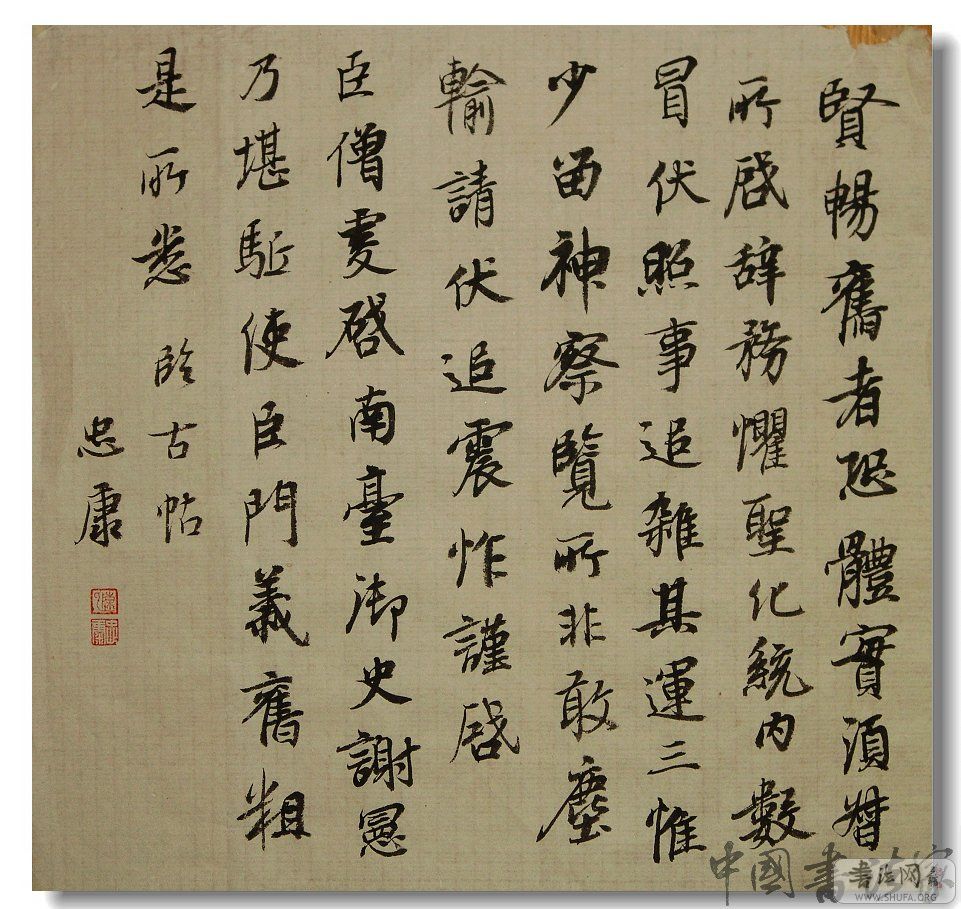 賢暢舊者恐體實須
所啓辞務懼聖化統内數
冒伏照事追雜其運三惟
少留神察覽所非敢塵
輸請伏追震怍謹啓
臣僧虔啓南臺御史謝憲
乃堪駈使臣門義舊粗
是所悉 臨古帖
忠康
中國書法家
书法网
WWW.SHUFA.ORG